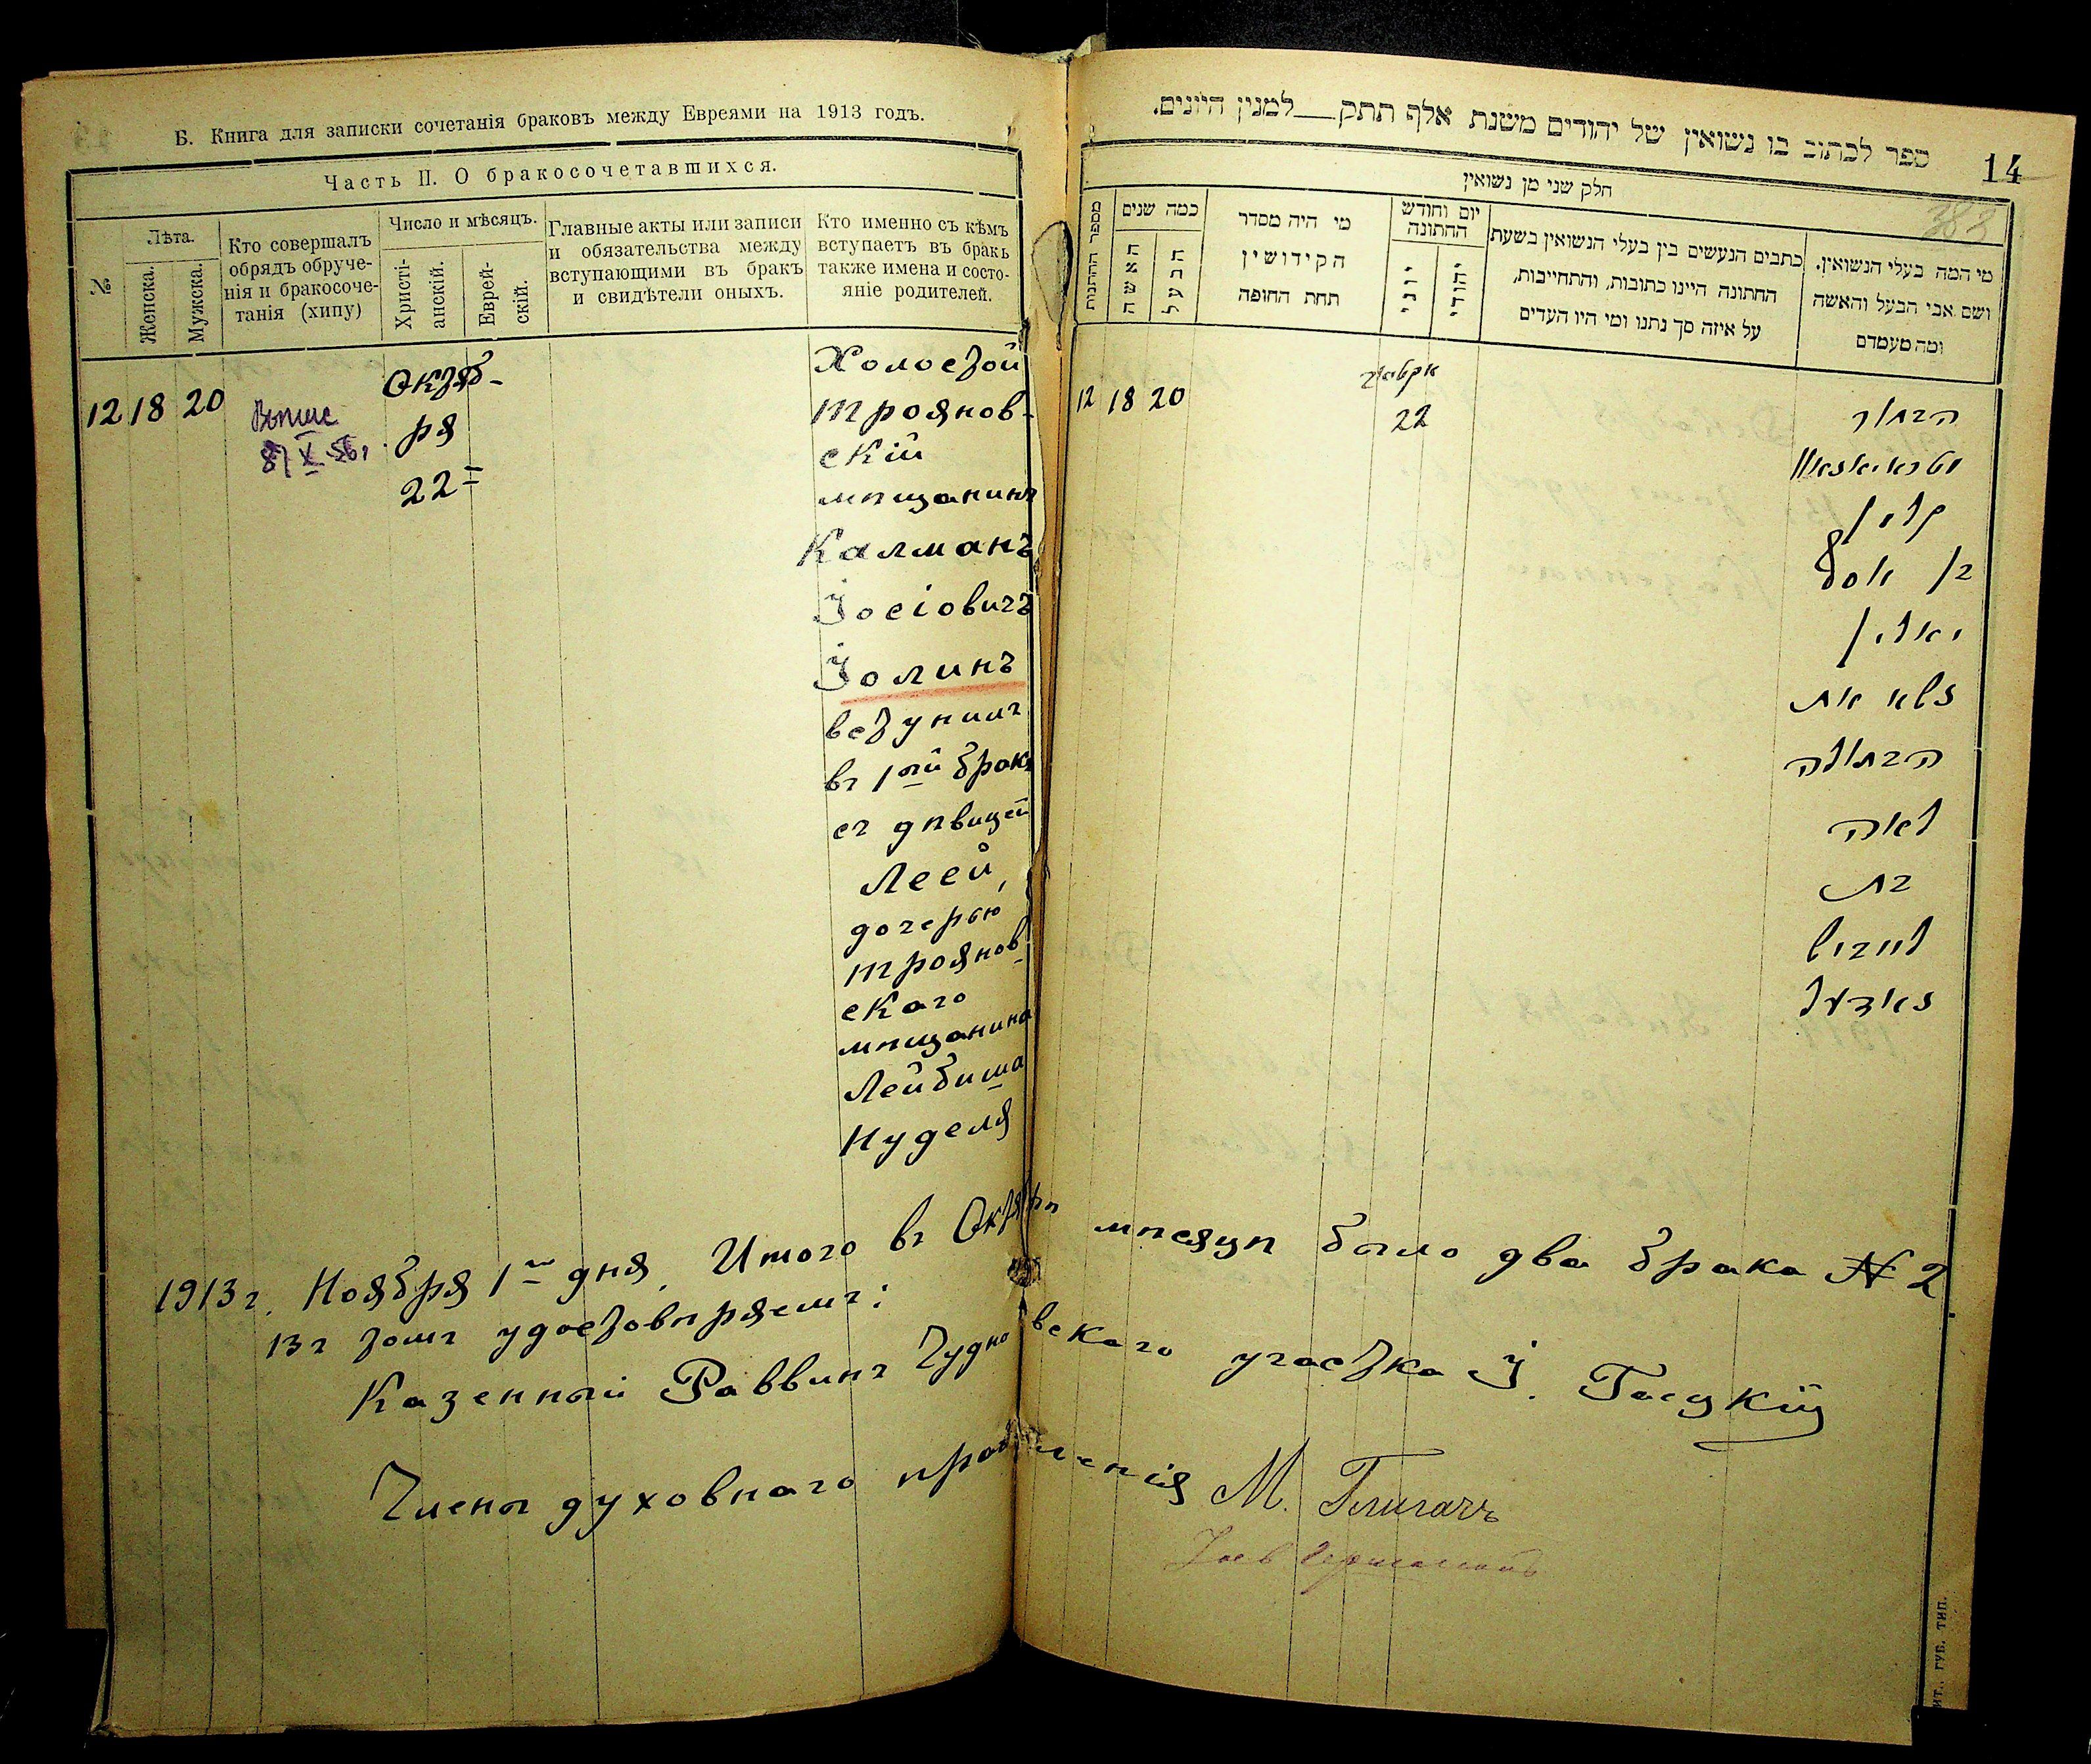 Б. Книга для записки сочетанія браковъ между Евреями на 1913 годъ.
Часть II. О бракосочетавшихся.
№
Лѣта.
Женска.
Мужска.
Кто совершалъ
обрядъ обруче-
нія и бракосоче-
танія (хипу)
Число и мѣсяцъ.
Христі-
анскій.
Еврей-
скій.
Главные акты или записи
и обязательства между
вступающими въ бракъ
и свидѣтели оныхъ.
Кто именно съ кѣмъ
вступаетъ въ бракъ
также имена и состо-
яніе родителей.
12 18 20
Октяб-
ря
22
Холостой
Троянов-
скій
мѣщанинъ
Калманъ
Іосіовичъ
Іолинъ
вступилъ
въ 1ый бракъ
съ дѣвицей
Леей,
дочерью
Троянов-
скаго
мѣщанина
Лейбиша
Нуделя
ספר לכתוב בו נשואין של יהודים משנת אלף תתק__למנין היונים.
14
383
חלק שני מן נשואין
מספר החתונות
כמה שנים
האשה
הבעל
מי היה מסדר
הקידושין
תחת החופה
יום וחודש
החתונה
יוני
יהודי
כתבים הנעשים בין בעלי הנשואין בשעת
החתונה היינו כתובות, והתחייבות,
על איזה סך נתנו ומי היו העדים
מי המה בעלי הנשואין.
ושם אבי הבעל והאשה
ומה מעמדם
12 18 20
22
הבחור
בן יוסף
יאלין
נשא את
הבתולה
לאה
בת
לייביש
1913 г. Ноября 1го дня. Итого въ Октябрѣ мѣсяцѣ было два брака № 2
въ томъ удостовѣряемъ:
Казенный Раввинъ Чудновскаго участка І.
Члены духовнаго правленія М.